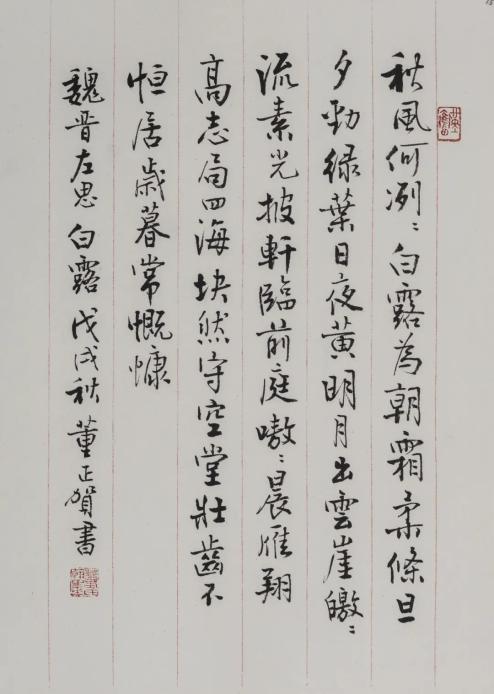 秋風何冽〻白露為朝霜柔條旦
夕勁緑葉日夜黄明月出雲崖皦〻
流素光披軒臨前庭嗷〻晨雁翔
高志局四海块然守空堂壯齒不
恒居歳暮常慨慷
魏晋左思白露戊戌秋董正賀書